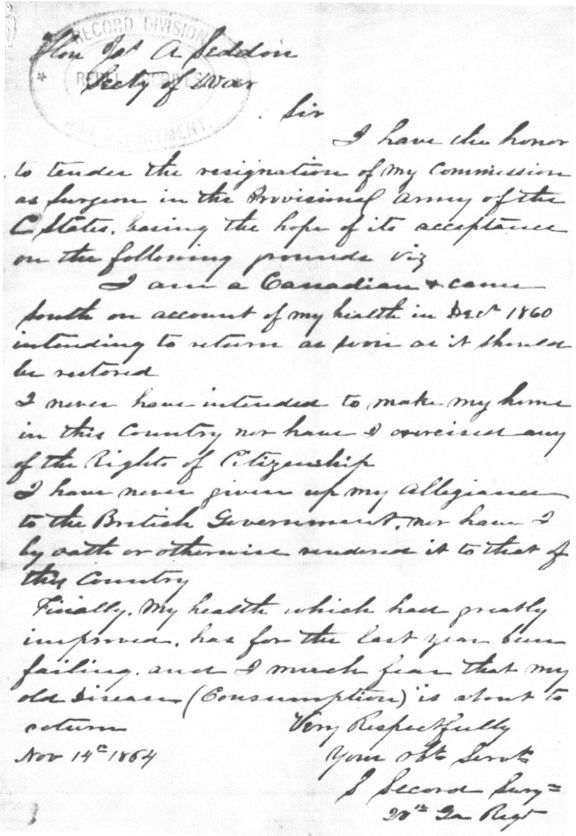 RECORD DIVISION
REBEL ARCHIVES
WAR DEPARTMENT
Hon Jas A Seddon
Secty of War
Sir
I have the honor
to tender the resignation of my Commission
as Surgeon in the Provisional Army of the
C States, basing the hope of its acceptance
on the following grounds viz
I am a Canadian & came
South on account of my health in Decr 1860
intending to return as soon as it should
be restored
I never have intended to make my home
in this Country nor have I exercised any
of the Rights of Citizenship
I have never given up my allegiance
to the British Government, nor have I
by oath or otherwise rendered it to that of
this Country
Finally, My health which had greatly
improved, has for the last year been
failing, and I much fear that my
old Disease (Consumption) is about to
return
Very Respectfully
Nov 14th 1864
Your Obt Servt
J Secord Surg=
20th Ga Regt